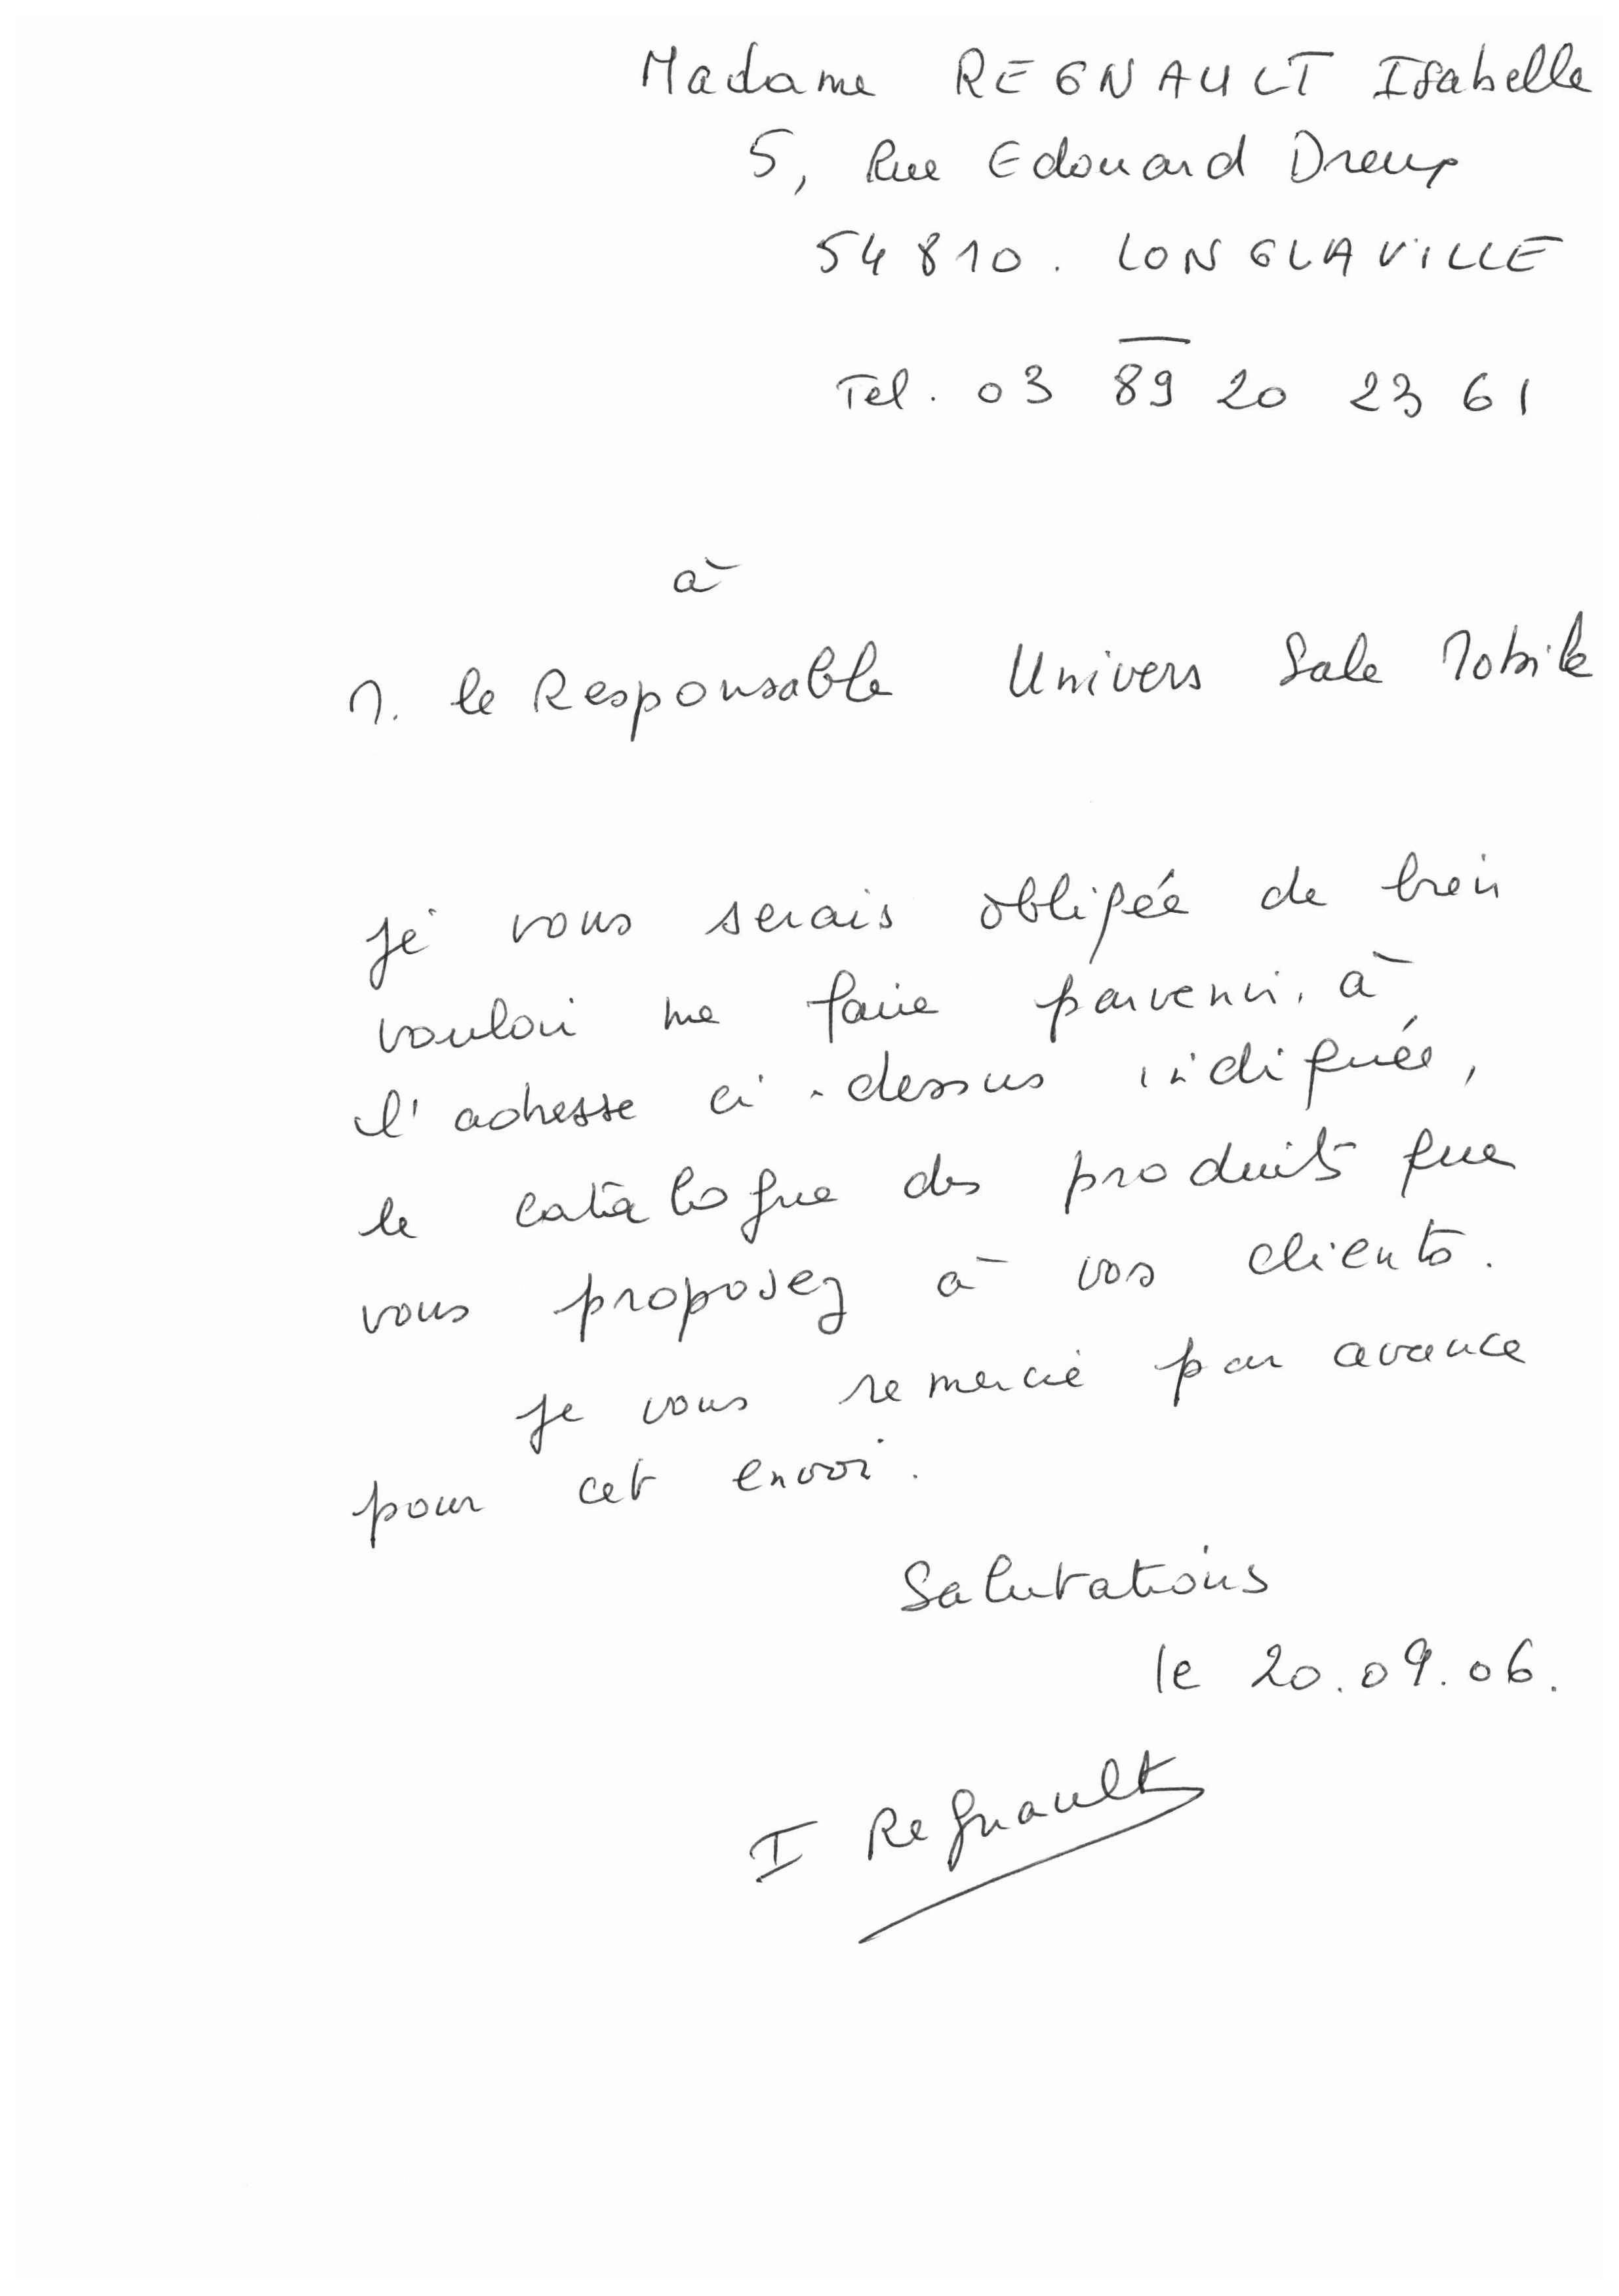 Madame REGNAULT Isabelle
5, Rue Edouard Dreux
54810. LONGLAVILLE
Tel. 03 89 20 23 61
à
M. le Responsable Univers Sale Mobile
Je vous serais obligée de bien
vouloir me faire parvenir, à
l'adresse ci-dessus indiquée,
le catalogue des produits que
vous proposez à vos clients.
Je vous remercie par avance
pour cet envoi.
Salutations
le 20.09.06.
I Regnault